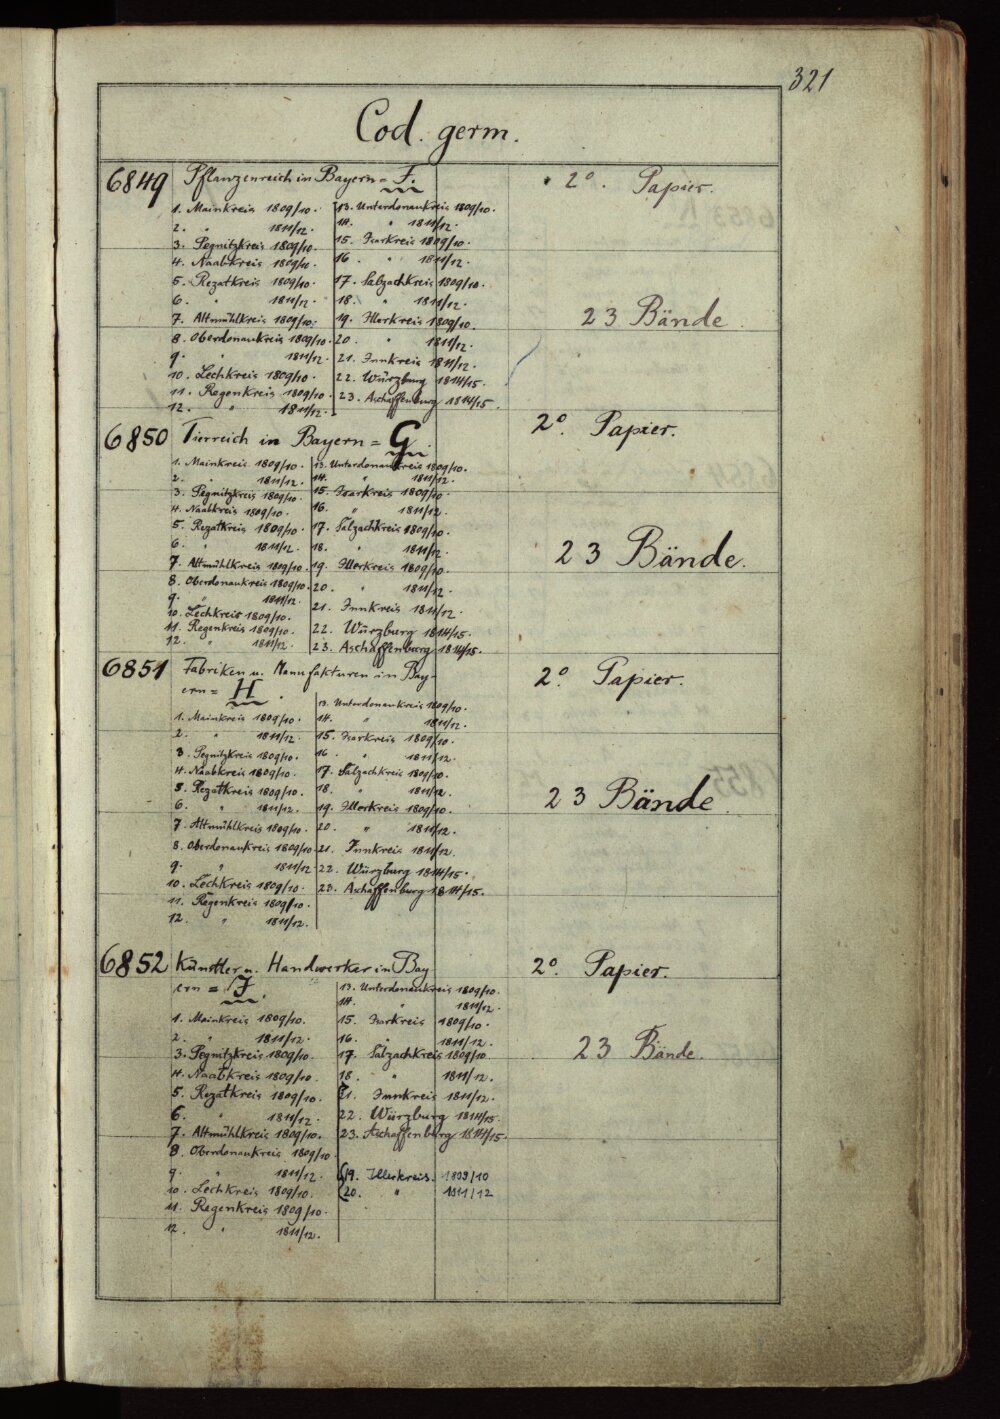 321
Cod. germ.
6849 Pflanzenreich in Bayern = F. 2°. Papier.
1. Mainkreis 1809/10.
2. " 1811/12.
3. Pegnitzkreis 1809/10.
4. Naabkreis 1809/10.
5. Rezatkreis 1809/10.
6. " 1811/12.
7. Altmühlkreis 1809/10.
8. Oberdonaukreis 1809/10.
9. " 1811/12.
10. Lechkreis 1809/10.
11. Regenkreis 1809/10.
12. " 1811/12.
13. Unterdonaukreis 1809/10.
14. " 1811/12.
15. Isarkreis 1809/10.
16. " 1811/12.
17. Salzachkreis 1809/10.
18. " 1811/12.
19. Illerkreis 1809/10.
20. " 1811/12.
21. Innkreis 1811/12.
22. Würzburg 1814/15.
23. Aschaffenburg 1814/15.
23 Bände.
6850 Tierreich in Bayern = G. 2°. Papier.
1. Mainkreis 1809/10.
2. " 1811/12.
3. Pegnitzkreis 1809/10.
4. Naabkreis 1809/10.
5. Rezatkreis 1809/10.
6. " 1811/12.
7. Altmühlkreis 1809/10.
8. Oberdonaukreis 1809/10.
9. " 1811/12.
10. Lechkreis 1809/10.
11. Regenkreis 1809/10.
12. " 1811/12.
13. Unterdonaukreis 1809/10.
14. " 1811/12.
15. Isarkreis 1809/10.
16. " 1811/12.
17. Salzachkreis 1809/10.
18. " 1811/12.
19. Illerkreis 1809/10.
20. " 1811/12.
21. Innkreis 1811/12.
22. Würzburg 1814/15.
23. Aschaffenburg 1814/15.
23 Bände.
6851 Fabriken u. Manufakturen in Bay- 2°. Papier.
ern = H.
1. Mainkreis 1809/10.
2. " 1811/12.
3. Pegnitzkreis 1809/10.
4. Naabkreis 1809/10.
5. Rezatkreis 1809/10.
6. " 1811/12.
7. Altmühlkreis 1809/10.
8. Oberdonaukreis 1809/10.
9. " 1811/12.
10. Lechkreis 1809/10.
11. Regenkreis 1809/10.
12. " 1811/12.
13. Unterdonaukreis 1809/10.
14. " 1811/12.
15. Isarkreis 1809/10.
16. " 1811/12.
17. Salzachkreis 1809/10.
18. " 1811/12.
19. Illerkreis 1809/10.
20. " 1811/12.
21. Innkreis 1811/12.
22. Würzburg 1814/15.
23. Aschaffenburg 1814/15.
23 Bände.
6852 Künstler u. Handwerker in Bay- 2°. Papier.
ern = J.
1. Mainkreis 1809/10.
2. " 1811/12.
3. Pegnitzkreis 1809/10.
4. Naabkreis 1809/10.
5. Rezatkreis 1809/10.
6. " 1811/12.
7. Altmühlkreis 1809/10.
8. Oberdonaukreis 1809/10.
9. " 1811/12.
10. Lechkreis 1809/10.
11. Regenkreis 1809/10.
12. " 1811/12.
13. Unterdonaukreis 1809/10.
14. " 1811/12.
15. Isarkreis 1809/10.
16. " 1811/12.
17. Salzachkreis 1809/10.
18. " 1811/12.
21. Innkreis 1811/12.
22. Würzburg 1814/15.
23. Aschaffenburg 1814/15.
19. Illerkreis. 1809/10
20. " 1811/12
23 Bände.